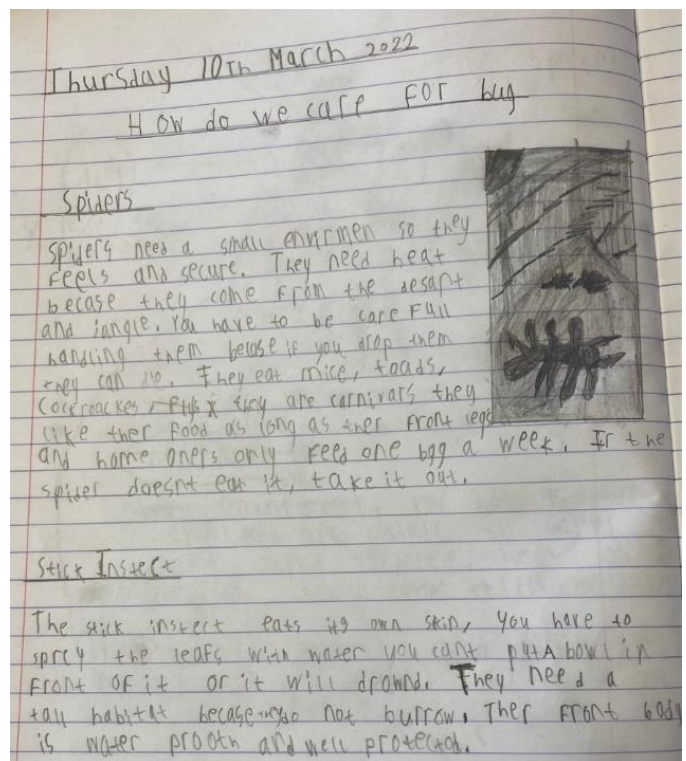 Thursday 10Th March 2022
How do we care FOr bug
Spiders
Spiders need a small envirmen so they
Feels and secure. They need heat
becase they come From the desart
and jangle. You have to be care Full
handling them becase if you drop them
they can die. They eat mice, toads,
Cockroackes, they are carnivars they
like ther food as long as ther front legs
and home oners only Feed one bgg a week. If the
spider doesnt eat it, take it out.
Stick Instect
The stick instect eats its own skin, you have to
sprey the leafs with water you cant put A bowl in
Front of it or it will drownd. They need a
tall habitat becase they do not burrow. Ther Front body
is water prooth and well protected.